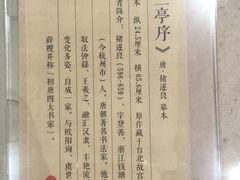 亭序》 唐·褚遂良 摹本
本 纵 24.5厘米 横 65.6厘米 原作藏于台北故宫
者简介：褚遂良(596-659) 字登善，浙江钱塘
(今杭州市)人。唐朝著名书法家，他
取法钟繇、王羲之，融汇汉隶，丰艳流
变化多姿，自成一家。与欧阳询、虞世
薛稷并称「初唐四大书家」。